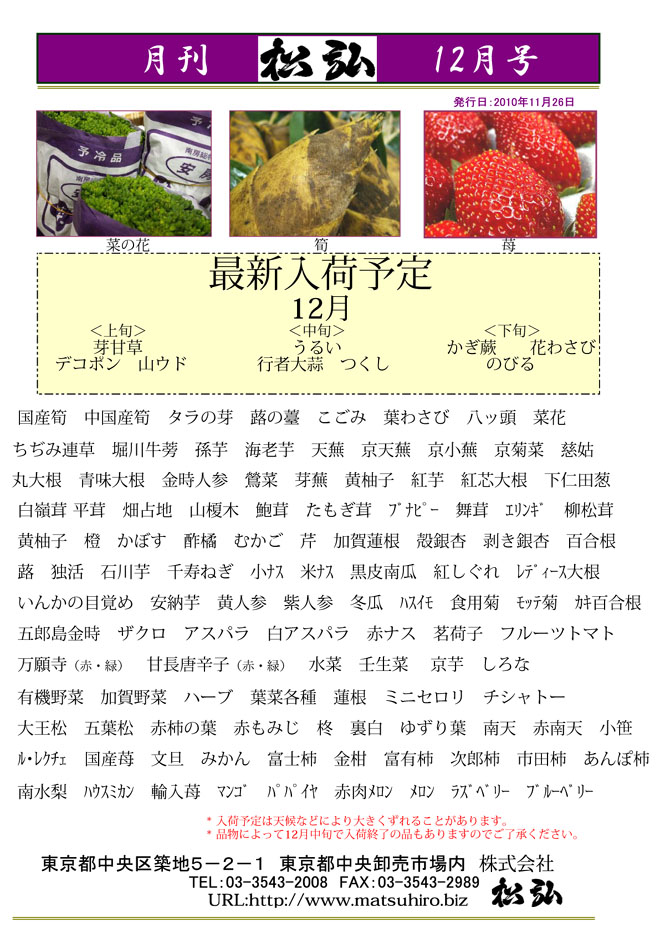 月刊 松弘 12月号
発行日：2010年11月26日
予冷品
南房総
安房
予冷品
南房
安
菜の花 筍 苺
最新入荷予定
12月
＜上旬＞ ＜中旬＞ ＜下旬＞
芽甘草 うるい かぎ蕨 花わさび
デコポン 山ウド 行者大蒜 つくし のびる
国産筍 中国産筍 タラの芽 蕗の薹 こごみ 葉わさび 八ッ頭 菜花
ちぢみ連草 堀川牛蒡 孫芋 海老芋 天蕪 京天蕪 京小蕪 京菊菜 慈姑
丸大根 青味大根 金時人参 鶯菜 芽蕪 黄柚子 紅芋 紅芯大根 下仁田葱
白嶺茸 平茸 畑占地 山榎木 鮑茸 たもぎ茸 ﾌﾞﾅﾋﾟｰ 舞茸 ｴﾘﾝｷﾞ 柳松茸
黄柚子 橙 かぼす 酢橘 むかご 芹 加賀蓮根 殻銀杏 剥き銀杏 百合根
蕗 独活 石川芋 千寿ねぎ 小ﾅｽ 米ﾅｽ 黒皮南瓜 紅しぐれ ﾚﾃﾞｨｰｽ大根
いんかの目覚め 安納芋 黄人参 紫人参 冬瓜 ﾊｽｲﾓ 食用菊 ﾓｯﾃ菊 ｶｷ百合根
五郎島金時 ザクロ アスパラ 白アスパラ 赤ナス 茗荷子 フルーツトマト
万願寺（赤・緑） 甘長唐辛子（赤・緑） 水菜 壬生菜 京芋 しろな
有機野菜 加賀野菜 ハーブ 葉菜各種 蓮根 ミニセロリ チシャトー
大王松 五葉松 赤柿の葉 赤もみじ 柊 裏白 ゆずり葉 南天 赤南天 小笹
ﾙ･ﾚｸﾁｪ 国産苺 文旦 みかん 富士柿 金柑 富有柿 次郎柿 市田柿 あんぽ柿
南水梨 ﾊｳｽﾐｶﾝ 輸入苺 ﾏﾝｺﾞ ﾊﾟﾊﾟｲﾔ 赤肉ﾒﾛﾝ ﾒﾛﾝ ﾗｽﾞﾍﾞﾘｰ ﾌﾞﾙｰﾍﾞﾘｰ
* 入荷予定は天候などにより大きくずれることがあります。
* 品物によって12月中旬で入荷終了の品もありますのでご了承ください。
東京都中央区築地５－２－１ 東京都中央卸売市場内 株式会社
TEL：03-3543-2008 FAX：03-3543-2989 松弘
URL:http://www.matsuhiro.biz